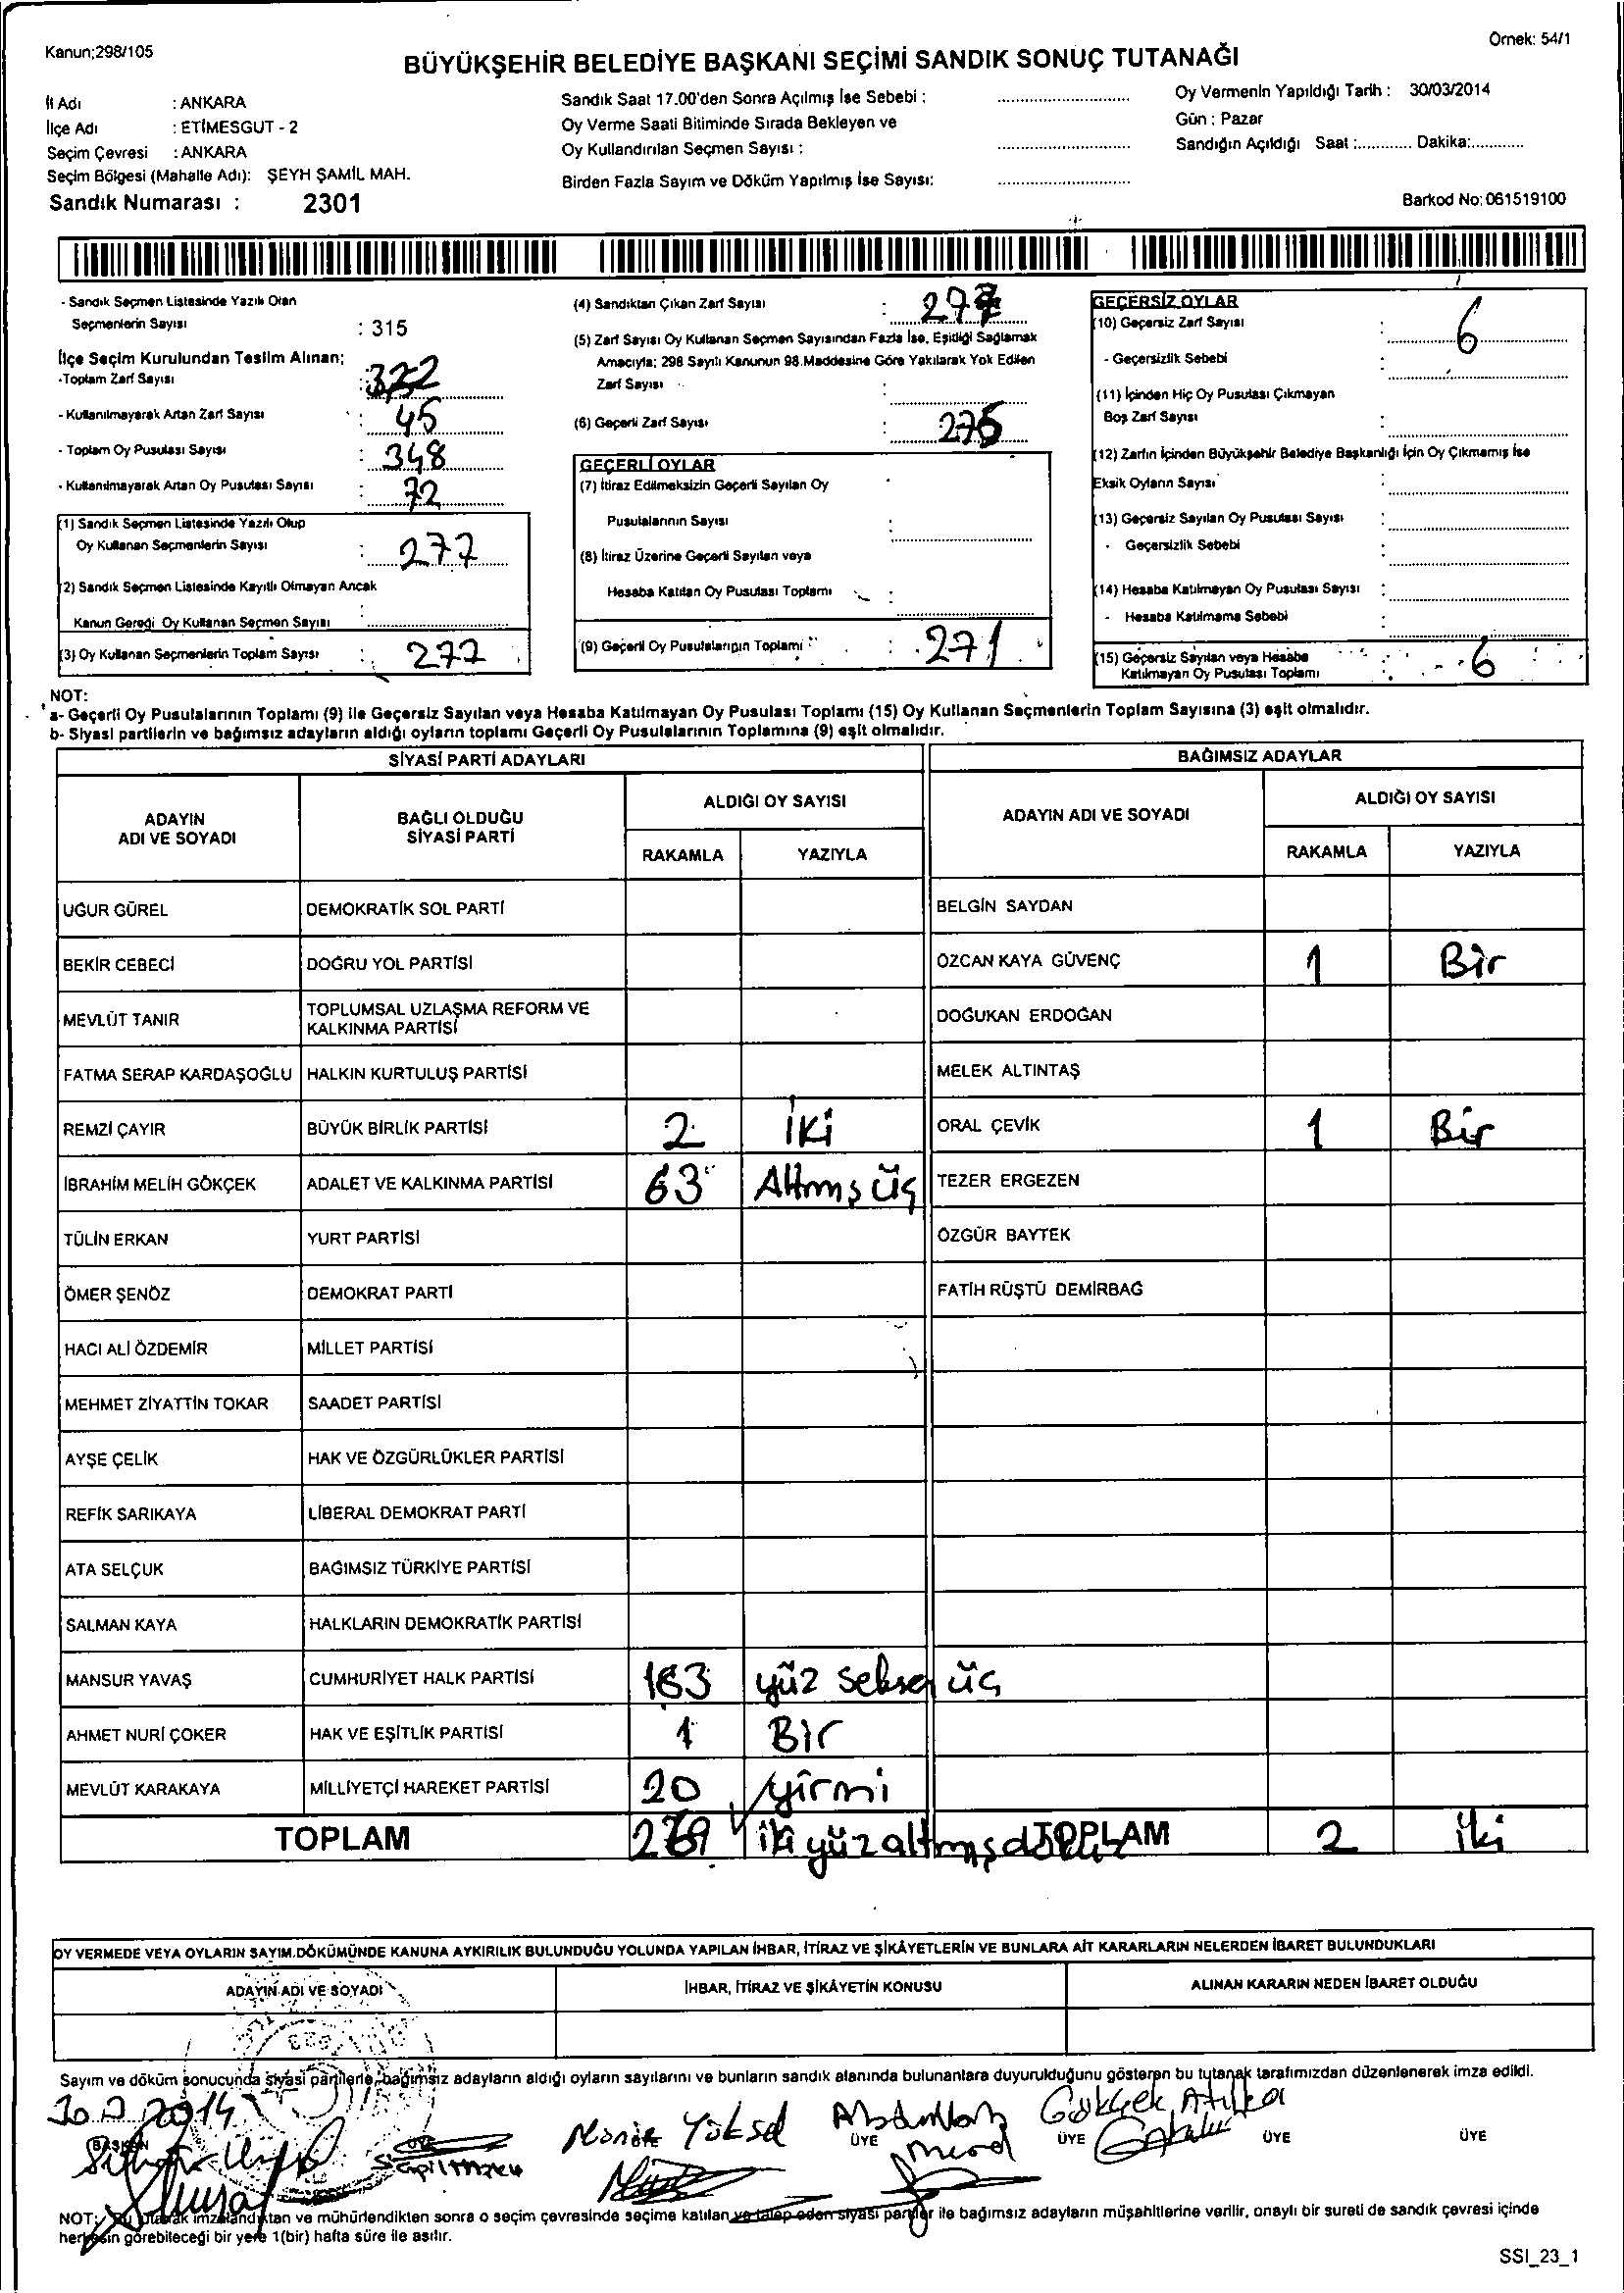 Kanun;298/105
Örnek: 54/1
BÜYÜKŞEHİR BELEDİYE BAŞKANI SEÇİMİ SANDIK SONUÇ TUTANAĞI
İl Adı : ANKARA
İlçe Adı : ETİMESGUT - 2
Seçim Çevresi : ANKARA
Seçim Bölgesi (Mahalle Adı): ŞEYH ŞAMİL MAH.
Sandık Numarası : 2301
Sandık Saat 17.00'den Sonra Açılmış İse Sebebi :
Oy Verme Saati Bitiminde Sırada Bekleyen ve
Oy Kullandırılan Seçmen Sayısı :
Birden Fazla Sayım ve Döküm Yapılmış İse Sayısı:
Oy Vermenin Yapıldığı Tarih : 30/03/2014
Gün : Pazar
Sandığın Açıldığı Saat :............ Dakika:............
Barkod No: 061519100
- Sandık Seçmen Listesinde Yazılı Olan
Seçmenlerin Sayısı : 315
İlçe Seçim Kurulundan Teslim Alınan;
-Toplam Zarf Sayısı : 322
- Kullanılmayarak Artan Zarf Sayısı : 45
- Toplam Oy Pusulası Sayısı : 348
- Kullanılmayarak Artan Oy Pusulası Sayısı : 72
(1) Sandık Seçmen Listesinde Yazılı Olup
Oy Kullanan Seçmenlerin Sayısı : 277
(2) Sandık Seçmen Listesinde Kayıtlı Olmayan Ancak
Kanun Gereği Oy Kullanan Seçmen Sayısı :
(3) Oy Kullanan Seçmenlerin Toplam Sayısı : 277
(4) Sandıktan Çıkan Zarf Sayısı : 277
(5) Zarf Sayısı Oy Kullanan Seçmen Sayısından Fazla İse, Eşitliği Sağlamak
Amacıyla; 298 Sayılı Kanunun 98.Maddesine Göre Yakılarak Yok Edilen
Zarf Sayısı :
(6) Geçerli Zarf Sayısı : 276
GEÇERLİ OYLAR
(7) İtiraz Edilmeksizin Geçerli Sayılan Oy
Pusulalarının Sayısı :
(8) İtiraz Üzerine Geçerli Sayılan veya
Hesaba Katılan Oy Pusulası Toplamı :
(9) Geçerli Oy Pusulalarının Toplamı : 271
GEÇERSİZ OYLAR
(10) Geçersiz Zarf Sayısı : 6
- Geçersizlik Sebebi :
(11) İçinden Hiç Oy Pusulası Çıkmayan
Boş Zarf Sayısı :
(12) Zarfın İçinden Büyükşehir Belediye Başkanlığı İçin Oy Çıkmamış İse
Eksik Oyların Sayısı :
(13) Geçersiz Sayılan Oy Pusulası Sayısı :
- Geçersizlik Sebebi :
(14) Hesaba Katılmayan Oy Pusulası Sayısı :
- Hesaba Katılmama Sebebi :
(15) Geçersiz Sayılan veya Hesaba
Katılmayan Oy Pusulası Toplamı : 6
NOT:
a- Geçerli Oy Pusulalarının Toplamı (9) ile Geçersiz Sayılan veya Hesaba Katılmayan Oy Pusulası Toplamı (15) Oy Kullanan Seçmenlerin Toplam Sayısına (3) eşit olmalıdır.
b- Siyasi partilerin ve bağımsız adayların aldığı oyların toplamı Geçerli Oy Pusulalarının Toplamına (9) eşit olmalıdır.
SİYASİ PARTİ ADAYLARI
ADAYIN
ADI VE SOYADI
BAĞLI OLDUĞU
SİYASİ PARTİ
ALDIĞI OY SAYISI
RAKAMLA YAZIYLA
UĞUR GÜREL DEMOKRATİK SOL PARTİ
BEKİR CEBECİ DOĞRU YOL PARTİSİ
MEVLÜT TANIR TOPLUMSAL UZLAŞMA REFORM VE
KALKINMA PARTİSİ
FATMA SERAP KARDAŞOĞLU HALKIN KURTULUŞ PARTİSİ
REMZİ ÇAYIR BÜYÜK BİRLİK PARTİSİ 2 iki
İBRAHİM MELİH GÖKÇEK ADALET VE KALKINMA PARTİSİ 63 Altmış üç
TÜLİN ERKAN YURT PARTİSİ
ÖMER ŞENÖZ DEMOKRAT PARTİ
HACI ALİ ÖZDEMİR MİLLET PARTİSİ
MEHMET ZİYATTİN TOKAR SAADET PARTİSİ
AYŞE ÇELİK HAK VE ÖZGÜRLÜKLER PARTİSİ
REFİK SARIKAYA LİBERAL DEMOKRAT PARTİ
ATA SELÇUK BAĞIMSIZ TÜRKİYE PARTİSİ
SALMAN KAYA HALKLARIN DEMOKRATİK PARTİSİ
MANSUR YAVAŞ CUMHURİYET HALK PARTİSİ 183 yüz seksen üç
AHMET NURİ ÇOKER HAK VE EŞİTLİK PARTİSİ 1 Bir
MEVLÜT KARAKAYA MİLLİYETÇİ HAREKET PARTİSİ 20 yirmi
TOPLAM 269 iki yüz altmış dokuz
BAĞIMSIZ ADAYLAR
ADAYIN ADI VE SOYADI
ALDIĞI OY SAYISI
RAKAMLA YAZIYLA
BELGİN SAYDAN
ÖZCAN KAYA GÜVENÇ 1 Bir
DOĞUKAN ERDOĞAN
MELEK ALTINTAŞ
ORAL ÇEVİK 1 Bir
TEZER ERGEZEN
ÖZGÜR BAYTEK
FATİH RÜŞTÜ DEMİRBAĞ
TOPLAM 2 iki
OY VERMEDE VEYA OYLARIN SAYIM.DÖKÜMÜNDE KANUNA AYKIRILIK BULUNDUĞU YOLUNDA YAPILAN İHBAR, İTİRAZ VE ŞİKÂYETLERİN VE BUNLARA AİT KARARLARIN NELERDEN İBARET BULUNDUKLARI
ADAYIN ADI VE SOYADI
İHBAR, İTİRAZ VE ŞİKÂYETİN KONUSU
ALINAN KARARIN NEDEN İBARET OLDUĞU
Sayım ve döküm sonucunda siyasi partilerle, bağımsız adayların aldığı oyların sayılarını ve bunların sandık alanında bulunanlara duyurulduğunu gösteren bu tutanak tarafımızdan düzenlenerek imza edildi.
Yüksel
Gökçek Atilla
BAŞKAN ÜYE ÜYE ÜYE ÜYE ÜYE ÜYE
NOT: Bu tutanak imzalandıktan ve mühürlendikten sonra o seçim çevresinde seçime katılan ve talep eden siyasi partiler ile bağımsız adayların müşahitlerine verilir, onaylı bir sureti de sandık çevresi içinde
herkesin görebileceği bir yere 1(bir) hafta süre ile asılır.
SSI_23_1